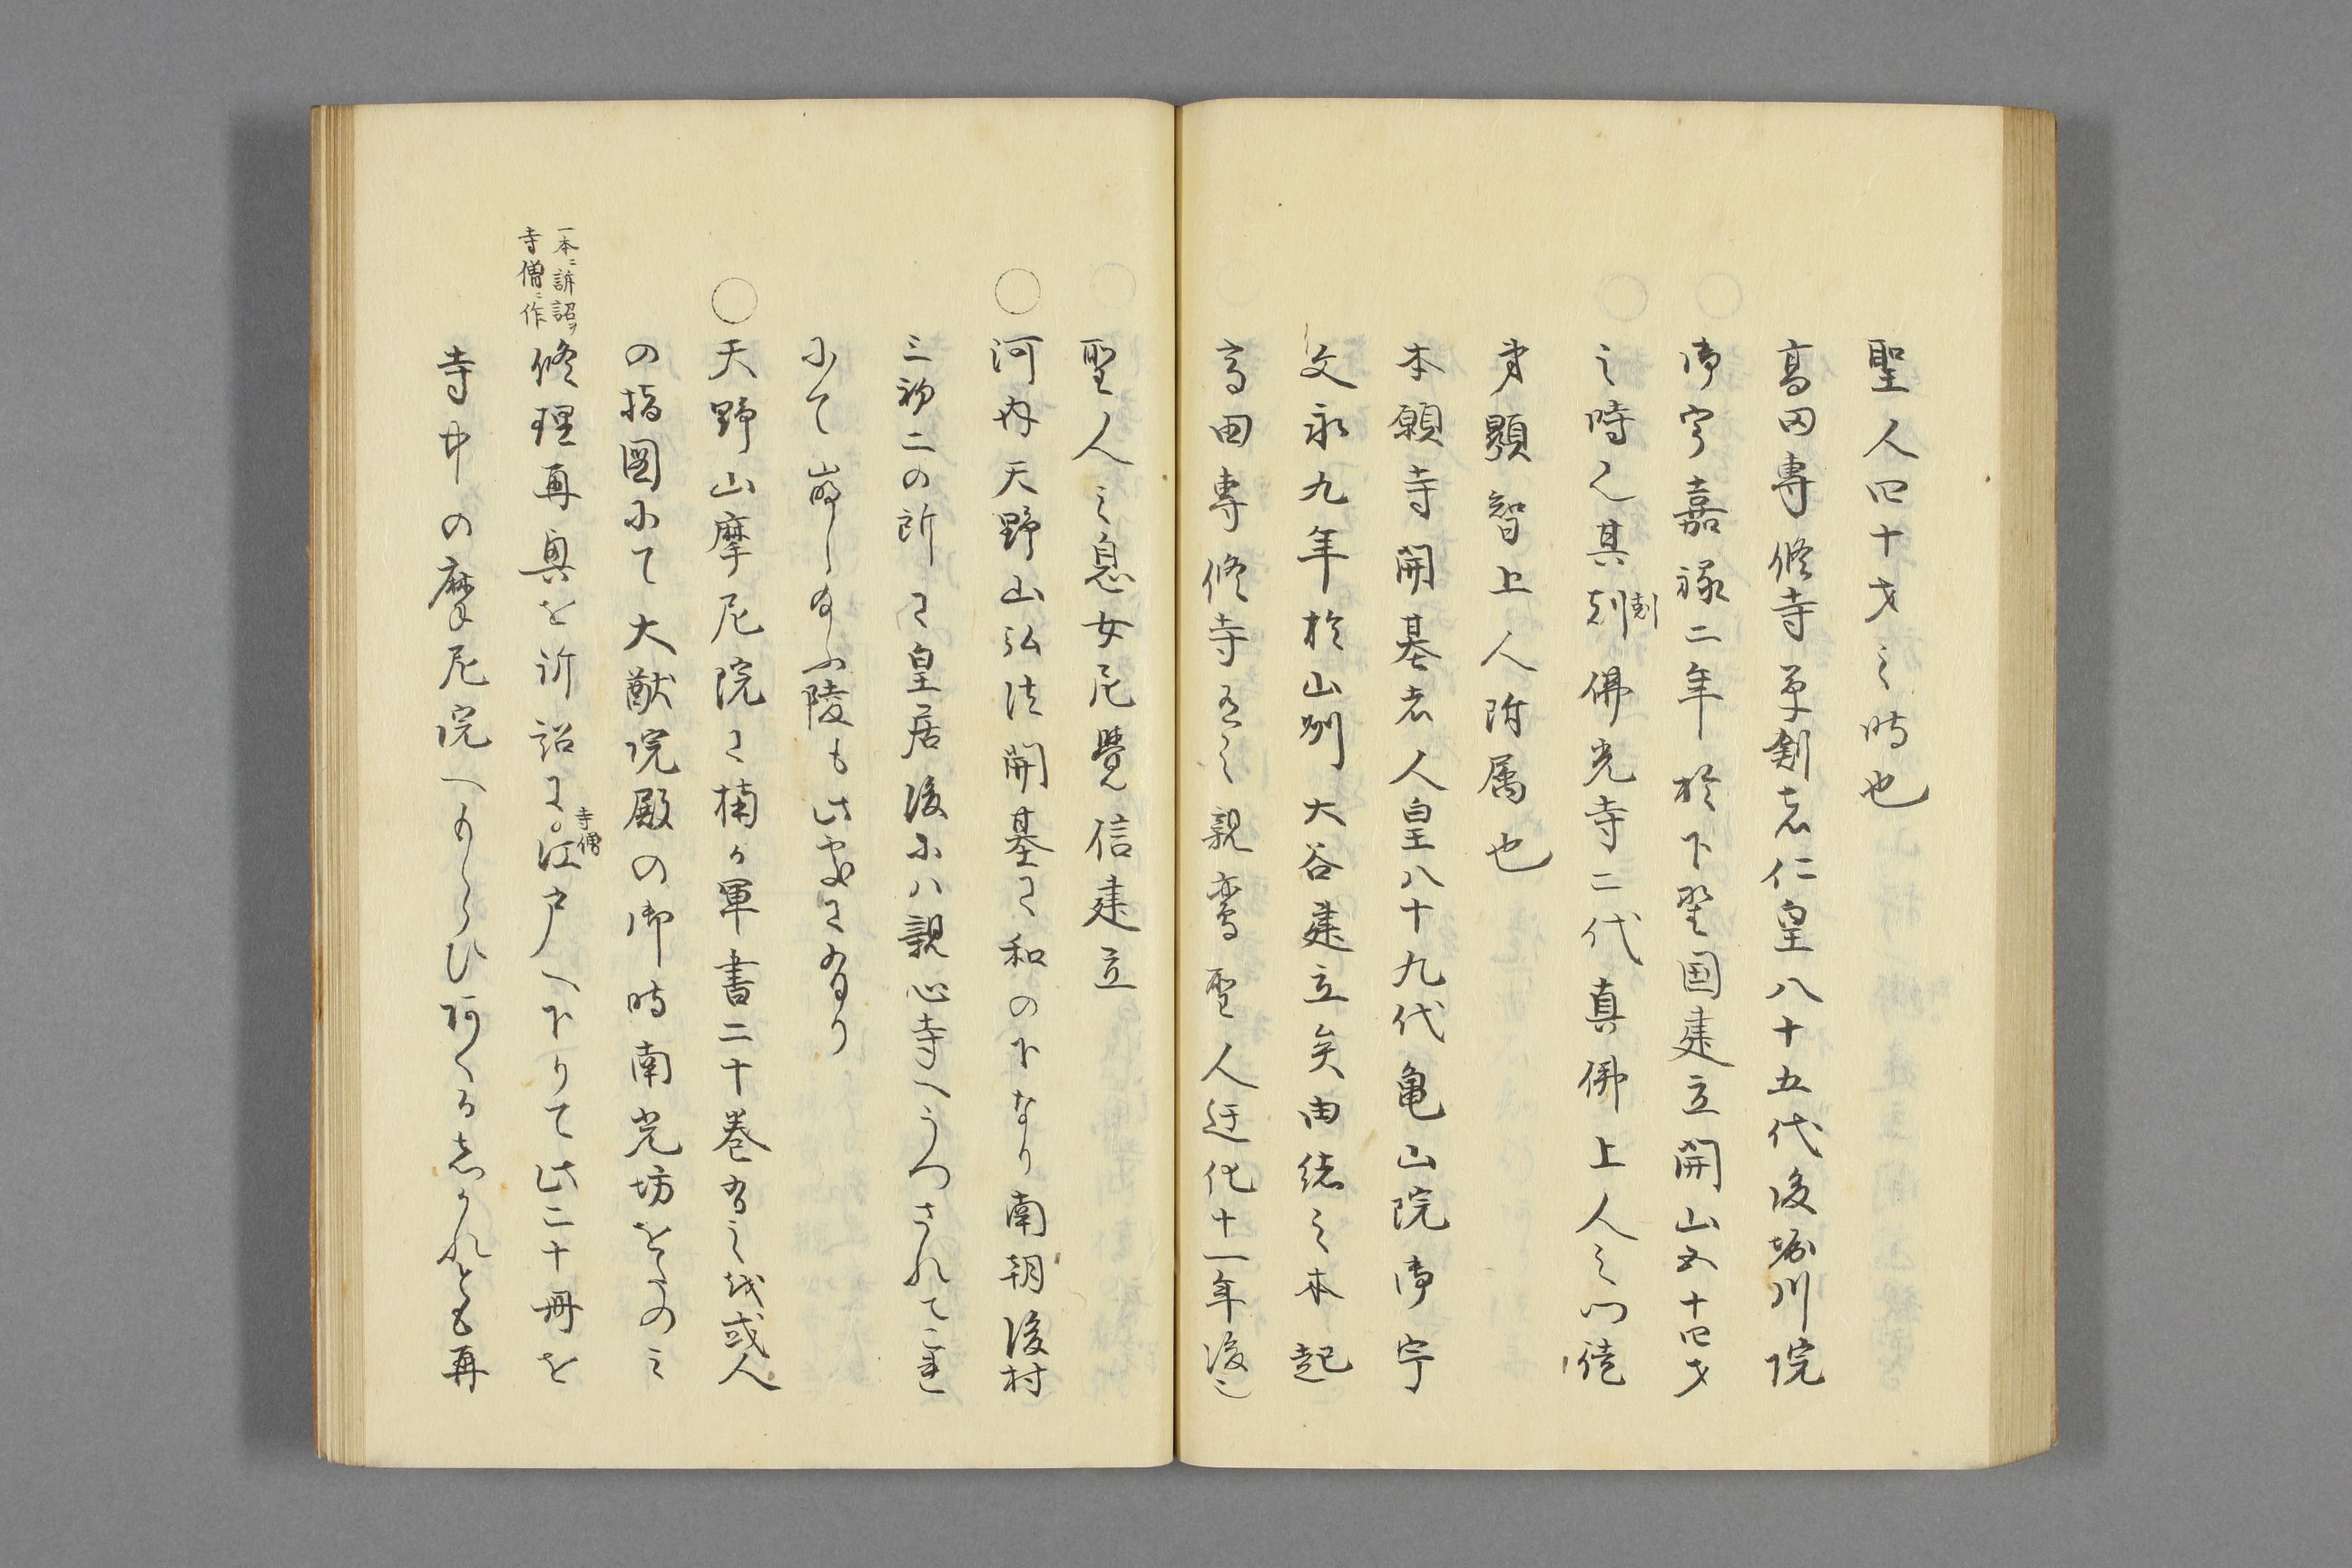 聖人四十才之時也
高田専修寺草創者仁皇八十五代後堀川院
御宇嘉禄二年於下野国建立開山五十四才
之時也其刻仏光寺二代真佛上人之門徒
刻
弟顕智上人附属也
本願寺開基者人皇八十九代亀山院御宇
文永九年於山州大谷建立矣由緒之本起
高田専修寺有之親鸞聖人迁化十一年後之
聖人之息女尼覺信建立
○河内天野山弘法開基にて和の下なり南朝後村
三初二の所に皇居後小ハ親心寺へうつされて
にて崩し給ふ陵も此処に有り
○天野山摩尼院に楠か軍書二十巻有之或人
の指図にて大猷院殿の御時南光坊をたのミ
修理再興を訴詔に。江戸へ下りて此二十冊を
寺僧
一本ニ訴詔ヲ
寺僧ニ作
寺中の摩尼院へもらひ